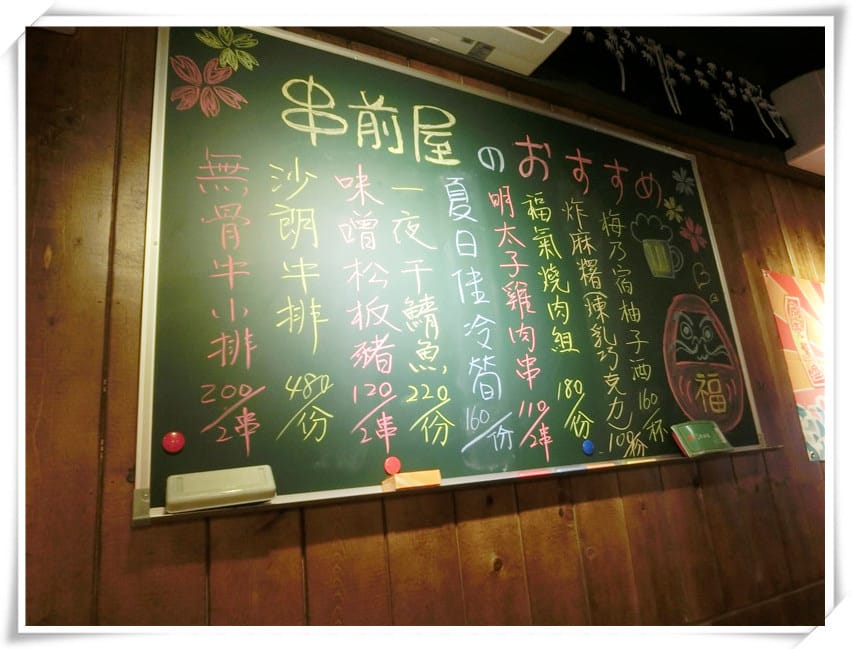 串前屋のおすすめ
梅乃宿柚子酒 160/杯
炸麻糬(煉乳巧克力) 100/杯
福氣燒肉組 180/份
明太子雞肉串 110/2串
夏日佳冷筍 160/份
一夜干鯖魚 220/份
味噌松板豬 120/2串
沙朗牛排 480/份
無骨牛小排 200/2串
福